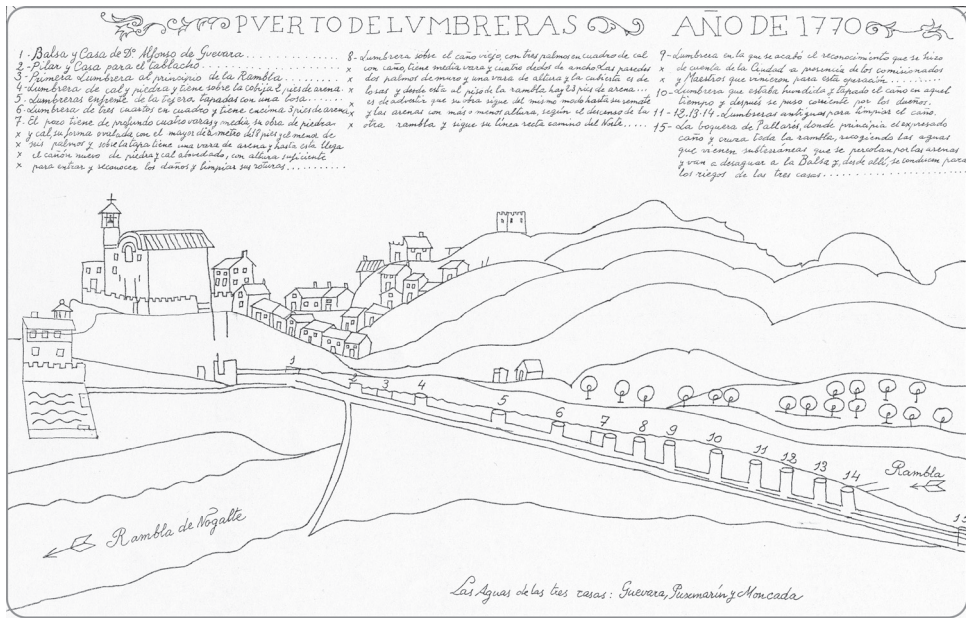 PVERTO DE LVMBRERAS AÑO DE 1770
1 - Balsa y Casa de Dn. Alfonso de Guevara
2 - Pilar y Casa para el tablacho
3 - Primera Lumbrera al principio de la Rambla
4 - Lumbrera de cal y piedra y tiene sobre la cobija 2 pies de arena
5 - Lumbreras enfrente de la tijera, tapadas con una losa
6 - Lumbrera de tres cuartos en cuadro y tiene encima 3 pies de arena
7 - El pozo tiene de profundo cuatro varas y media, su obra de piedra
x y cal, su forma ovalada con el mayor diámetro de 18 pies y el menor de
x seis palmos y sobre la tapa tiene una vara de arena y hasta esta llega
x el cañón nuevo de piedra y cal abovedado, con altura suficiente
x para entrar y reconocer los daños y limpiar sus roturas
8 - Lumbrera sobre el caño viejo, con tres palmos en cuadro de cal
x con caño, tiene media vara y cuatro dedos de ancho, las paredes
x dos palmos de muro y una vara de altura y la cubierta es de
x losas y desde esta al piso de la rambla hay 23 pies de arena
x es de advertir que su obra sigue del mismo modo hasta su remate
x y las arenas con más o menos altura, según el descenso de la
x otra rambla y sigue su línea recta camino del Norte
9 - Lumbrera en la que se acabó el reconocimiento que se hizo
x de cuenta de la Ciudad a presencia de los comisionados
x y Maestros que vinieron para esta operación
10 - Lumbrera que estaba hundida y tapado el caño en aquel
tiempo y después se puso corriente por los dueños.
11 - 12. 13. 14. Lumbreras antiguas para limpiar el caño.
15 - La boquera de Pallarés, donde principia el expresado
caño y cruza toda la rambla, recogiendo las aguas
que vienen subterráneas que se percolan por las arenas
y van a desaguar a la Balsa y, desde allí, se conducen para
los riegos de las tres casas
1
2
3
4
5
6
7
8
9
10
11
12
13
14
Rambla
15
Rambla de Nogalte
Las Aguas de las tres casas: Guevara, Puxmarín y Moncada